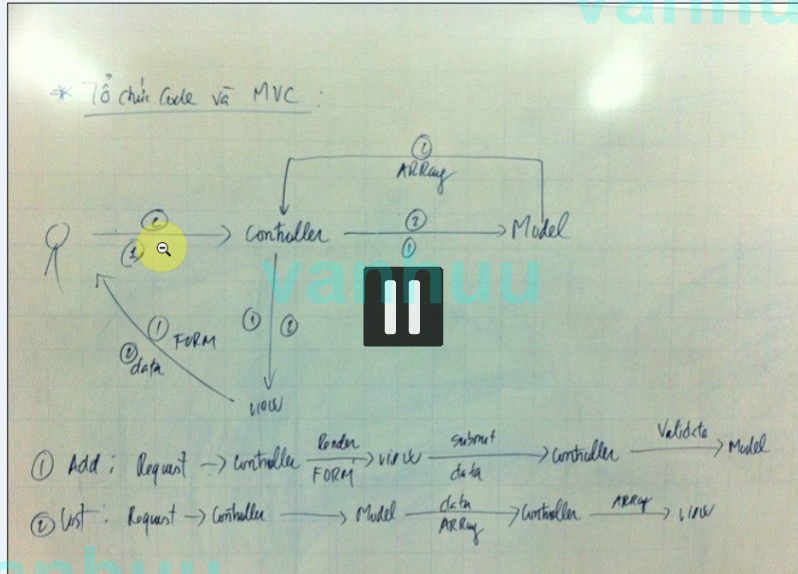 vanhuu
* Tổ chức Code và MVC :
②
ARRay
② Controller ② Model
① ①
vanhuu
① ②
① FORM
② data
view
① Add : Request → Controller Render FORM → view submit data → controller Validate → Model
② List : Request → Controller → Model data ARRay → Controller ARRay → view
vanhuu